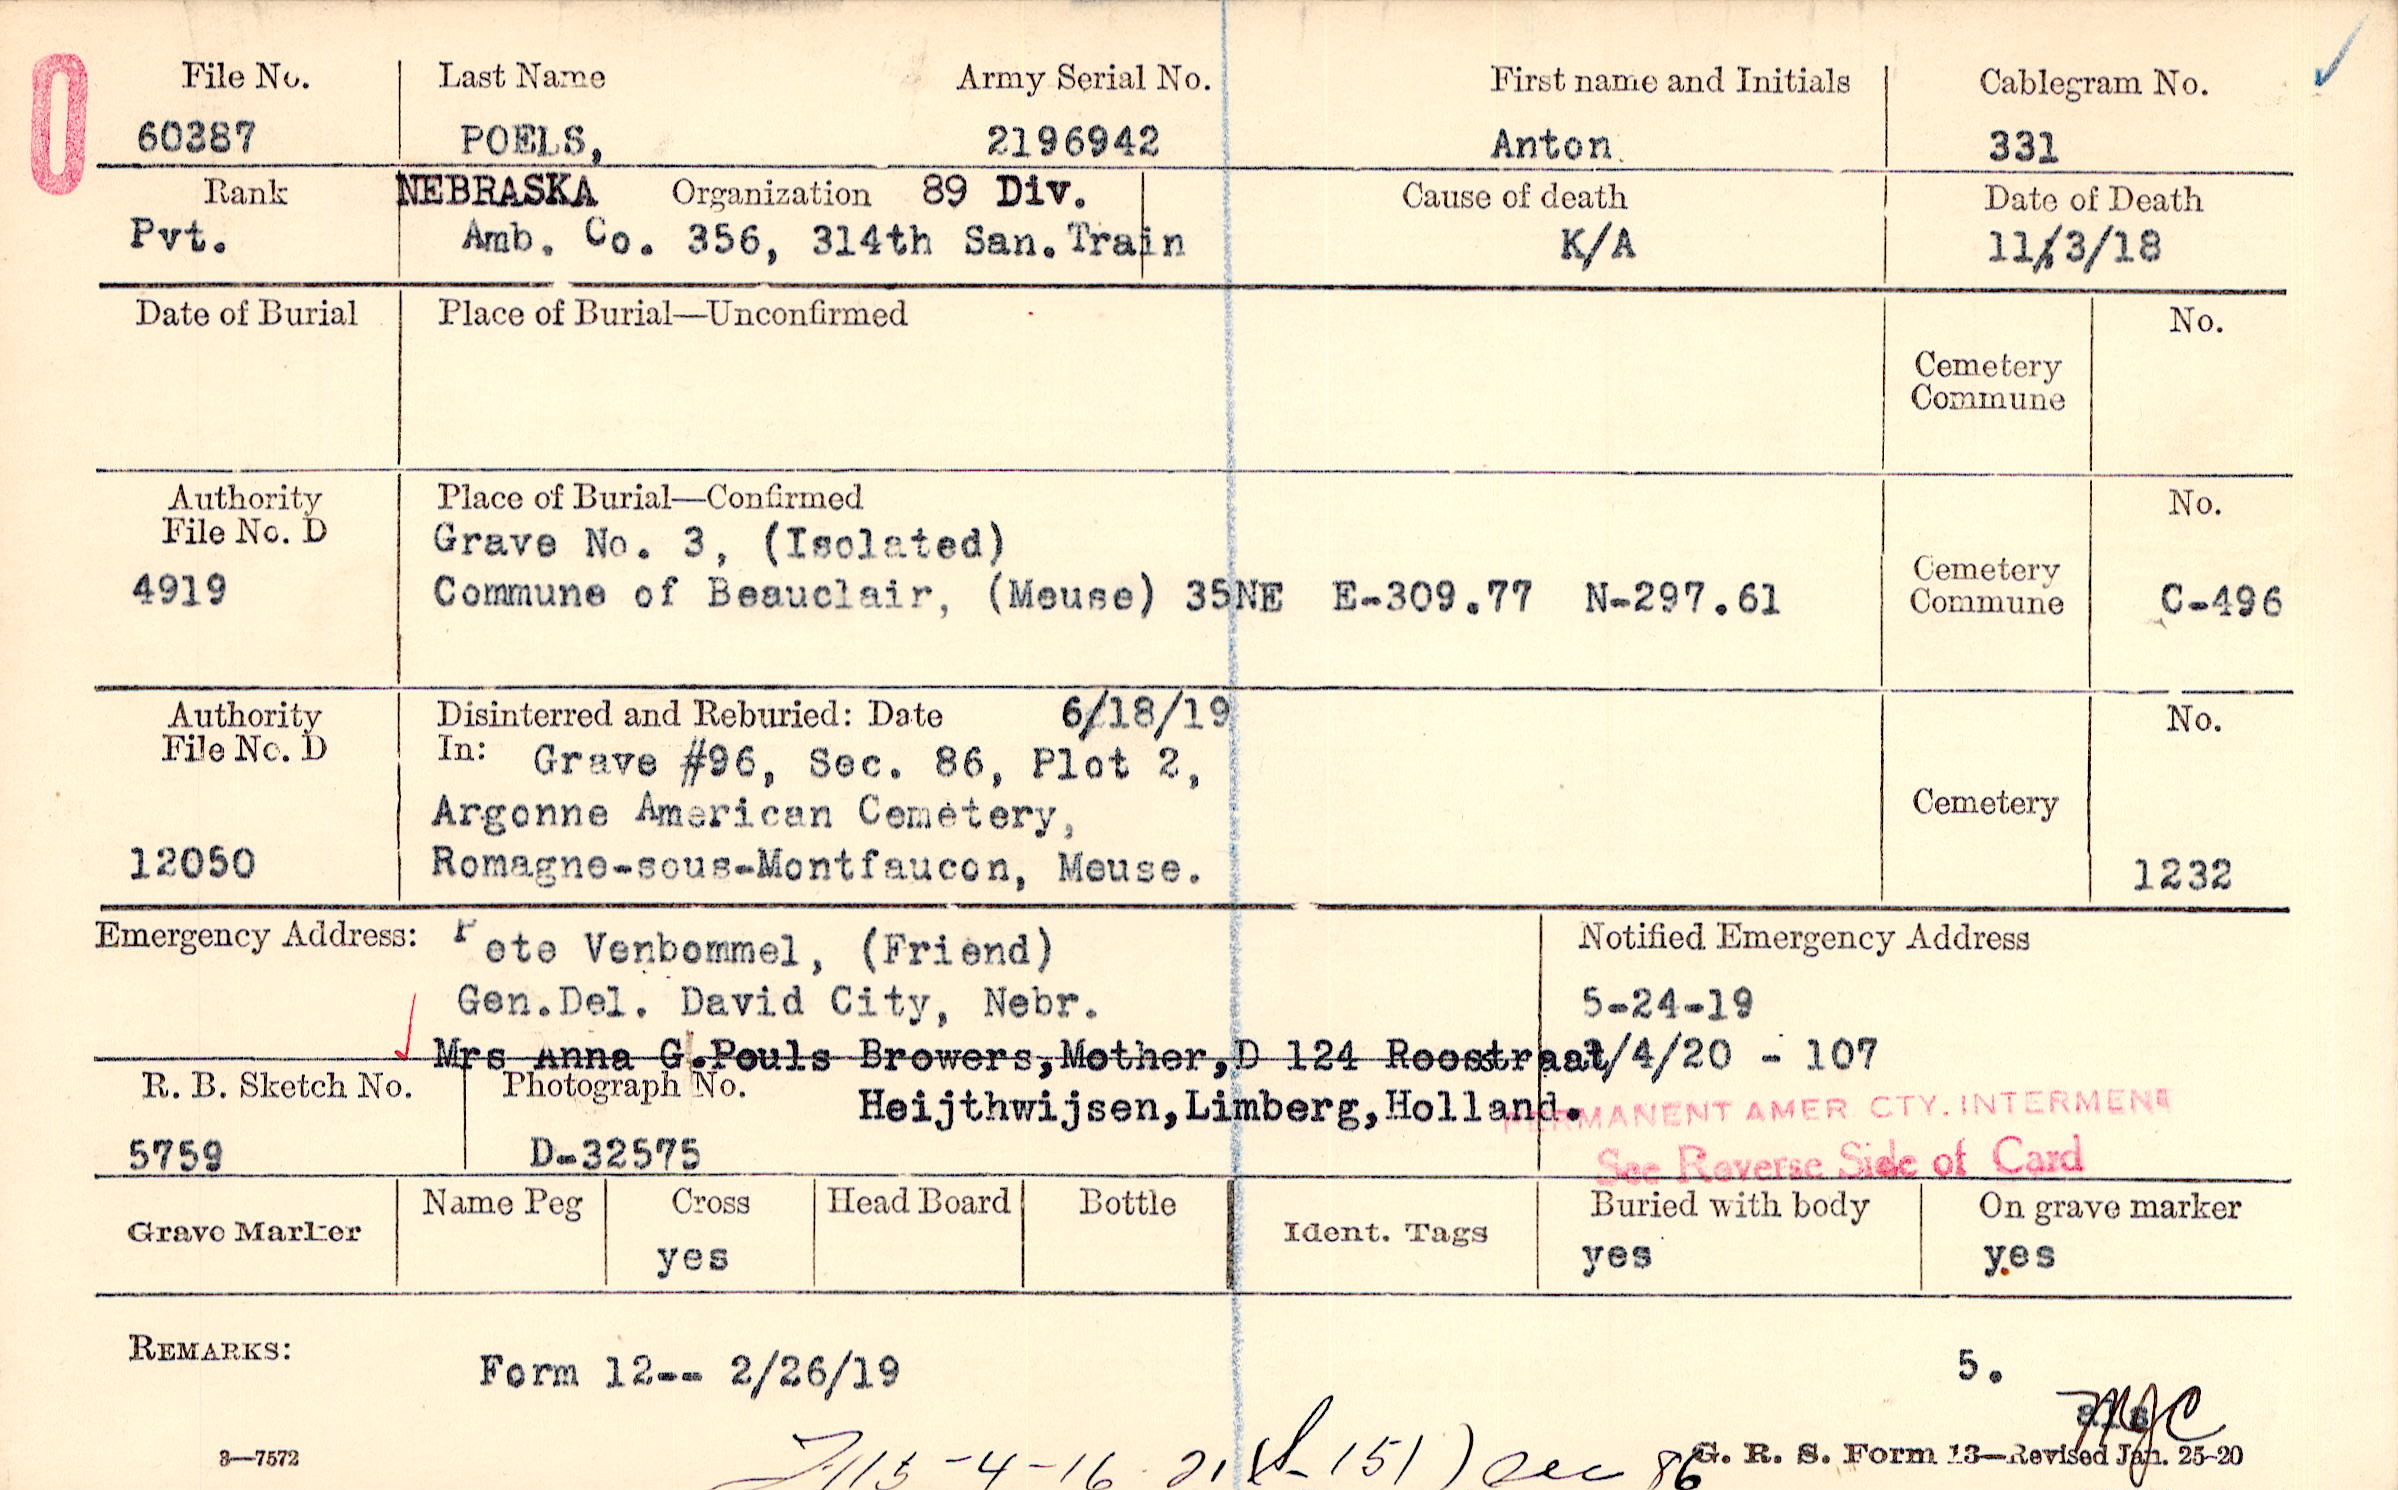 0
File No. Last Name Army Serial No. First name and Initials Cablegram No.
60387 POELS, 2196942 Anton. 331
Rank NEBRASKA Organization 89 Div. Cause of death Date of Death
Pvt. Amb. Co. 356, 314th San. Train K/A 11/3/18
Date of Burial Place of Burial—Unconfirmed No.
Cemetery
Commune
Authority Place of Burial—Confirmed No.
File No. D Grave No. 3, (Isolated)
4919 Commune of Beauclair, (Meuse) 35NE E-309.77 N-297.61 Cemetery Commune C-496
Authority Disinterred and Reburied: Date 6/18/19 No.
File No. D In: Grave #96, Sec. 86, Plot 2,
Argonne American Cemetery, Cemetery
12050 Romagne-sous-Montfaucon, Meuse. 1232
Emergency Address: Pete Venbommel, (Friend) Notified Emergency Address
Gen.Del. David City, Nebr. 5-24-19
Mrs Anna G.Pouls Browers,Mother,D 124 Roostraat /4/20 - 107
R. B. Sketch No. Photograph No. Heijthwijsen,Limberg,Holland.
PERMANENT AMER CTY. INTERMENT
5759 D-32575 See Reverse Side of Card
Grave Marker Name Peg Cross Head Board Bottle Ident. Tags Buried with body On grave marker
yes yes yes
REMARKS: Form 12-- 2/26/19 5.
3—7572 15-4-16 21 (S-151) Sec 86 G. R. S. Form 13—Revised Jan. 25-20